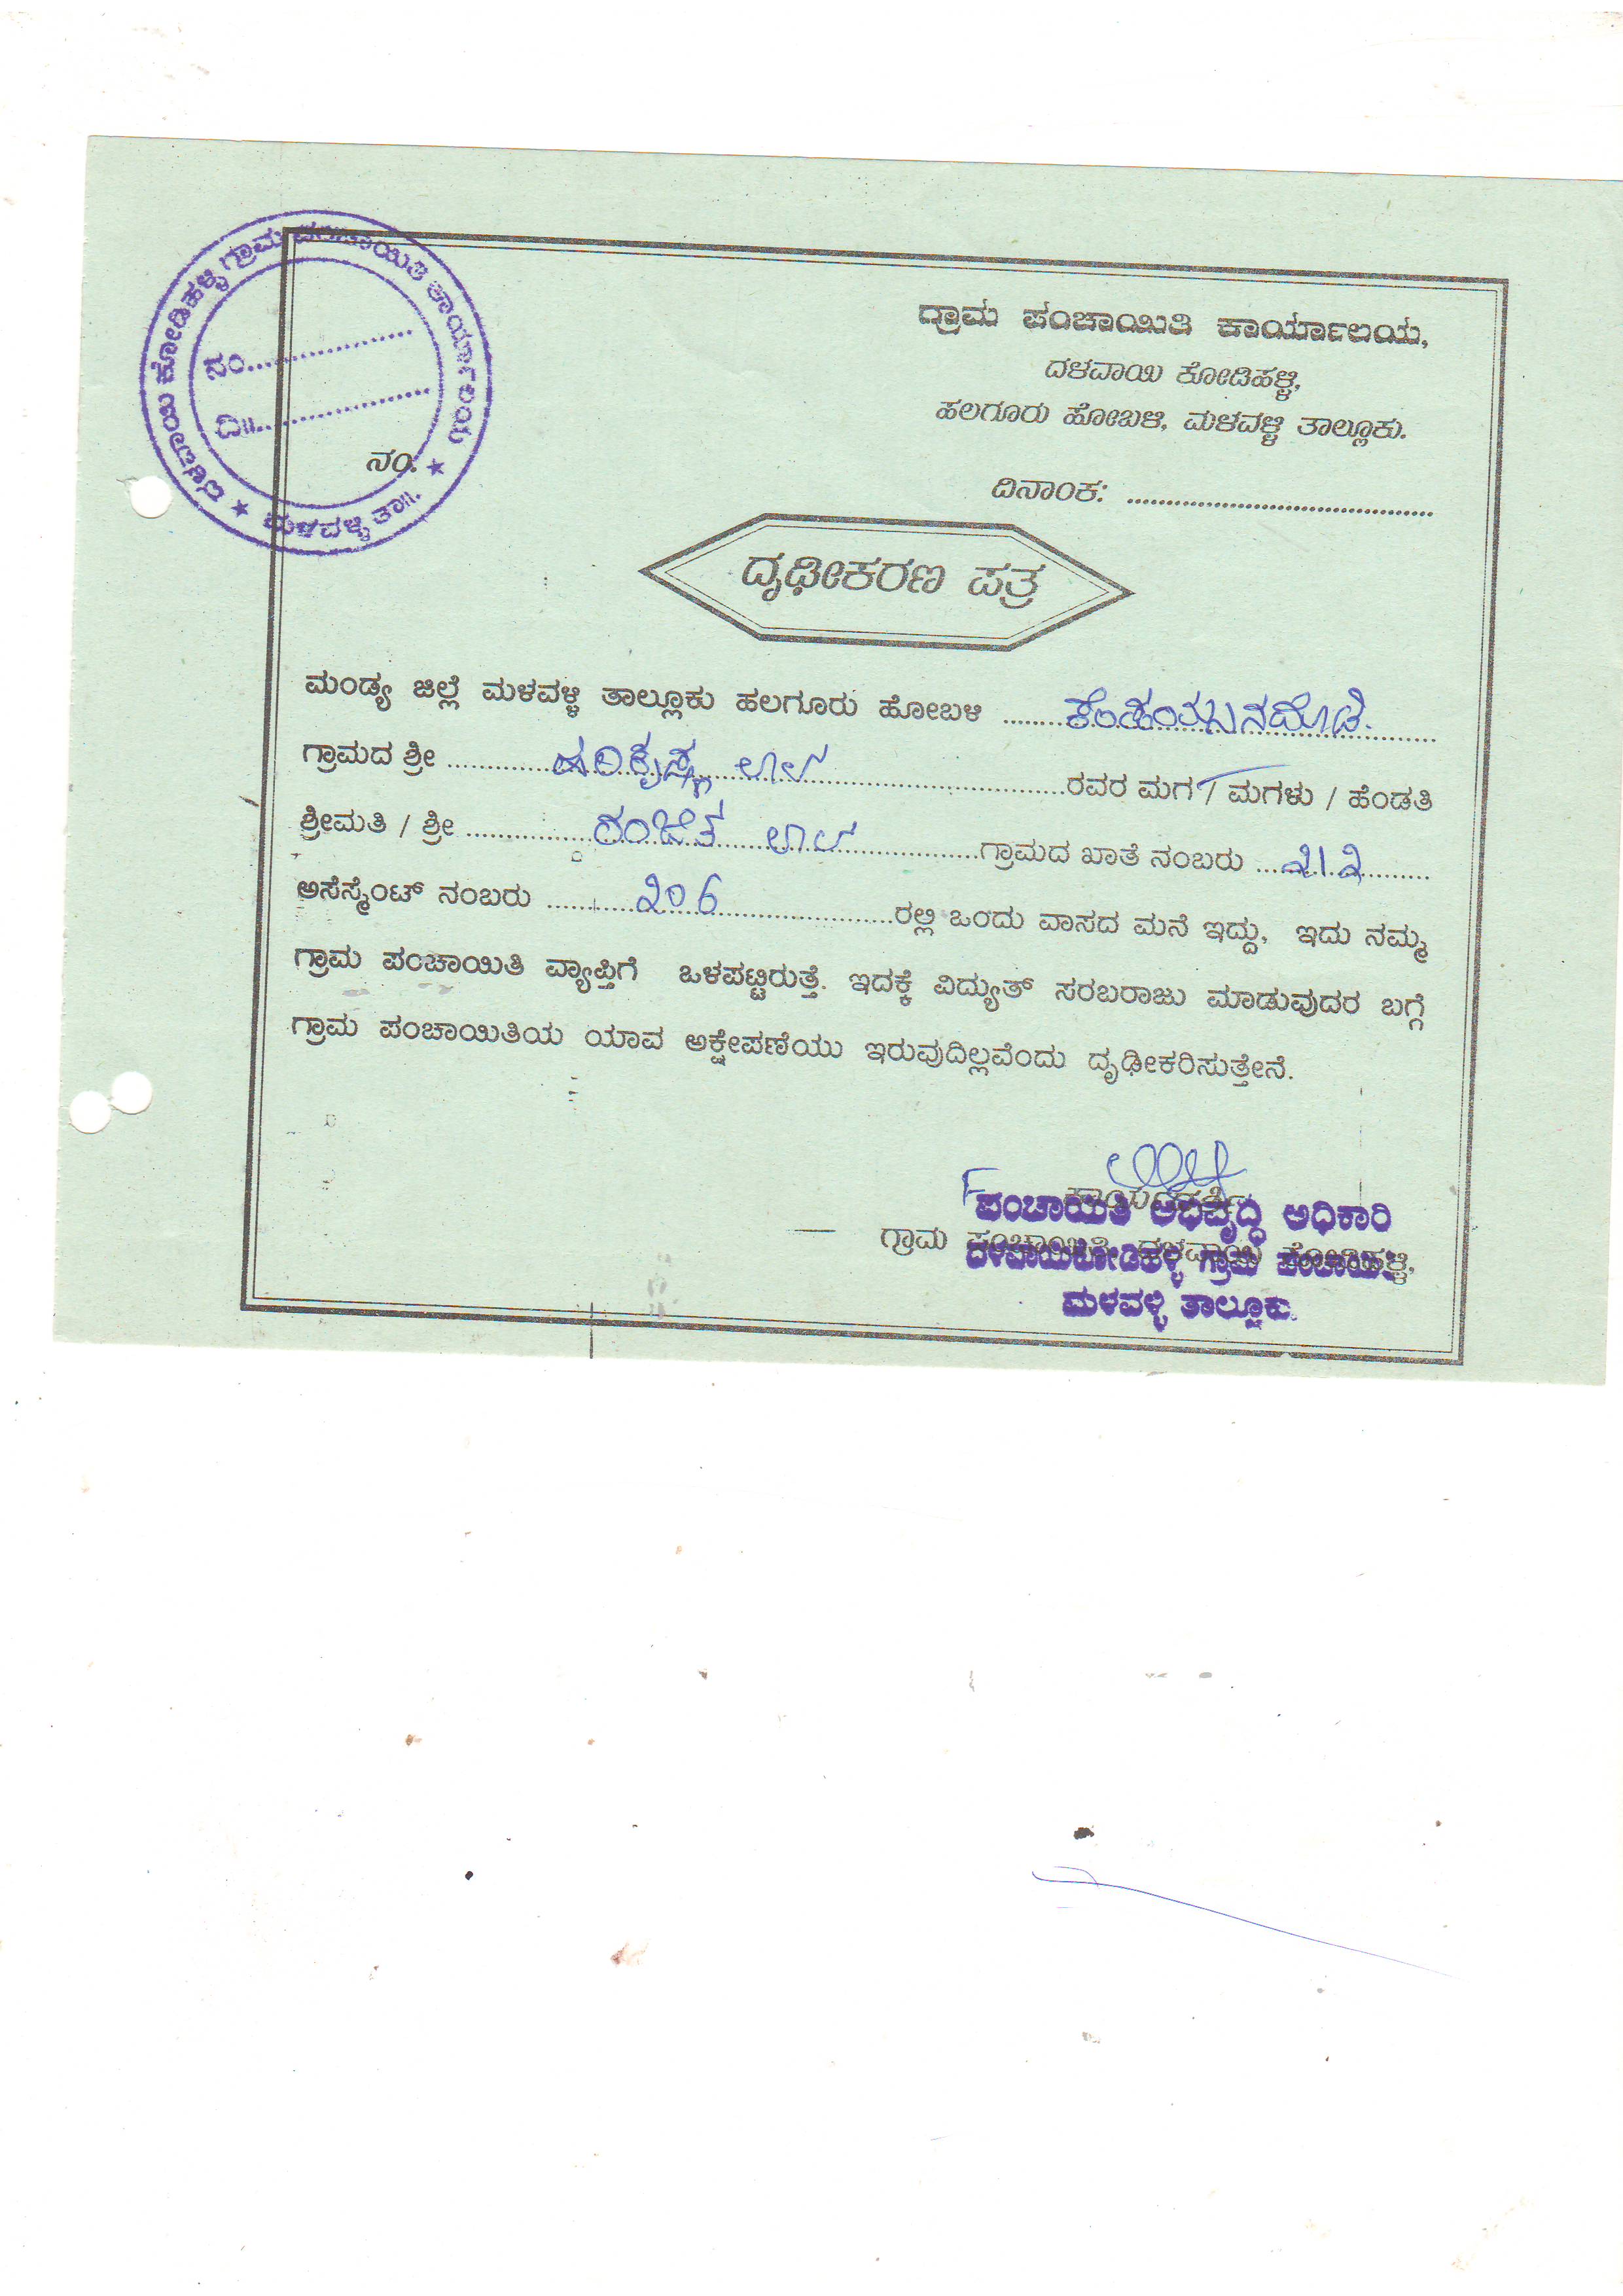 ದಳವಾಯಿ ಕೋಡಿಹಳ್ಳಿ ಗ್ರಾಮ ಪಂಚಾಯಿತಿ ಕಾರ್ಯಾಲಯ
★ ಮಳವಳ್ಳಿ ತಾ॥. ★
ನಂ....................
ದಿ॥....................
ನಂ.
ಗ್ರಾಮ ಪಂಚಾಯಿತಿ ಕಾರ್ಯಾಲಯ,
ದಳವಾಯಿ ಕೋಡಿಹಳ್ಳಿ,
ಹಲಗೂರು ಹೋಬಳಿ, ಮಳವಳ್ಳಿ ತಾಲ್ಲೂಕು.
ದಿನಾಂಕ: ........................................
ದೃಢೀಕರಣ ಪತ್ರ
ಮಂಡ್ಯ ಜಿಲ್ಲೆ ಮಳವಳ್ಳಿ ತಾಲ್ಲೂಕು ಹಲಗೂರು ಹೋಬಳಿ
ಗ್ರಾಮದ ಶ್ರೀ ಹರಿಕೃಷ್ಣ ಲಾಲ ರವರ ಮಗ / ಮಗಳು / ಹೆಂಡತಿ
ಶ್ರೀಮತಿ / ಶ್ರೀ ರಂಜಿತ ಲಾಲ ಗ್ರಾಮದ ಖಾತೆ ನಂಬರು ೨1೨
ಅಸೆಸ್ಮೆಂಟ್ ನಂಬರು ೨೦6 ರಲ್ಲಿ ಒಂದು ವಾಸದ ಮನೆ ಇದ್ದು, ಇದು ನಮ್ಮ
ಗ್ರಾಮ ಪಂಚಾಯಿತಿ ವ್ಯಾಪ್ತಿಗೆ ಒಳಪಟ್ಟಿರುತ್ತೆ. ಇದಕ್ಕೆ ವಿದ್ಯುತ್ ಸರಬರಾಜು ಮಾಡುವುದರ ಬಗ್ಗೆ
ಗ್ರಾಮ ಪಂಚಾಯಿತಿಯ ಯಾವ ಅಕ್ಷೇಪಣೆಯು ಇರುವುದಿಲ್ಲವೆಂದು ದೃಢೀಕರಿಸುತ್ತೇನೆ.
ಪಂಚಾಯಿತಿ ಅಭಿವೃದ್ಧಿ ಅಧಿಕಾರಿ
ಗ್ರಾಮ ಪಂಚಾಯಿತಿ, ದಳವಾಯಿ ಕೋಡಿಹಳ್ಳಿ,
ದಳವಾಯಿಕೋಡಿಹಳ್ಳಿ ಗ್ರಾಮ ಪಂಚಾಯಿತಿ
ಮಳವಳ್ಳಿ ತಾಲ್ಲೂಕು.